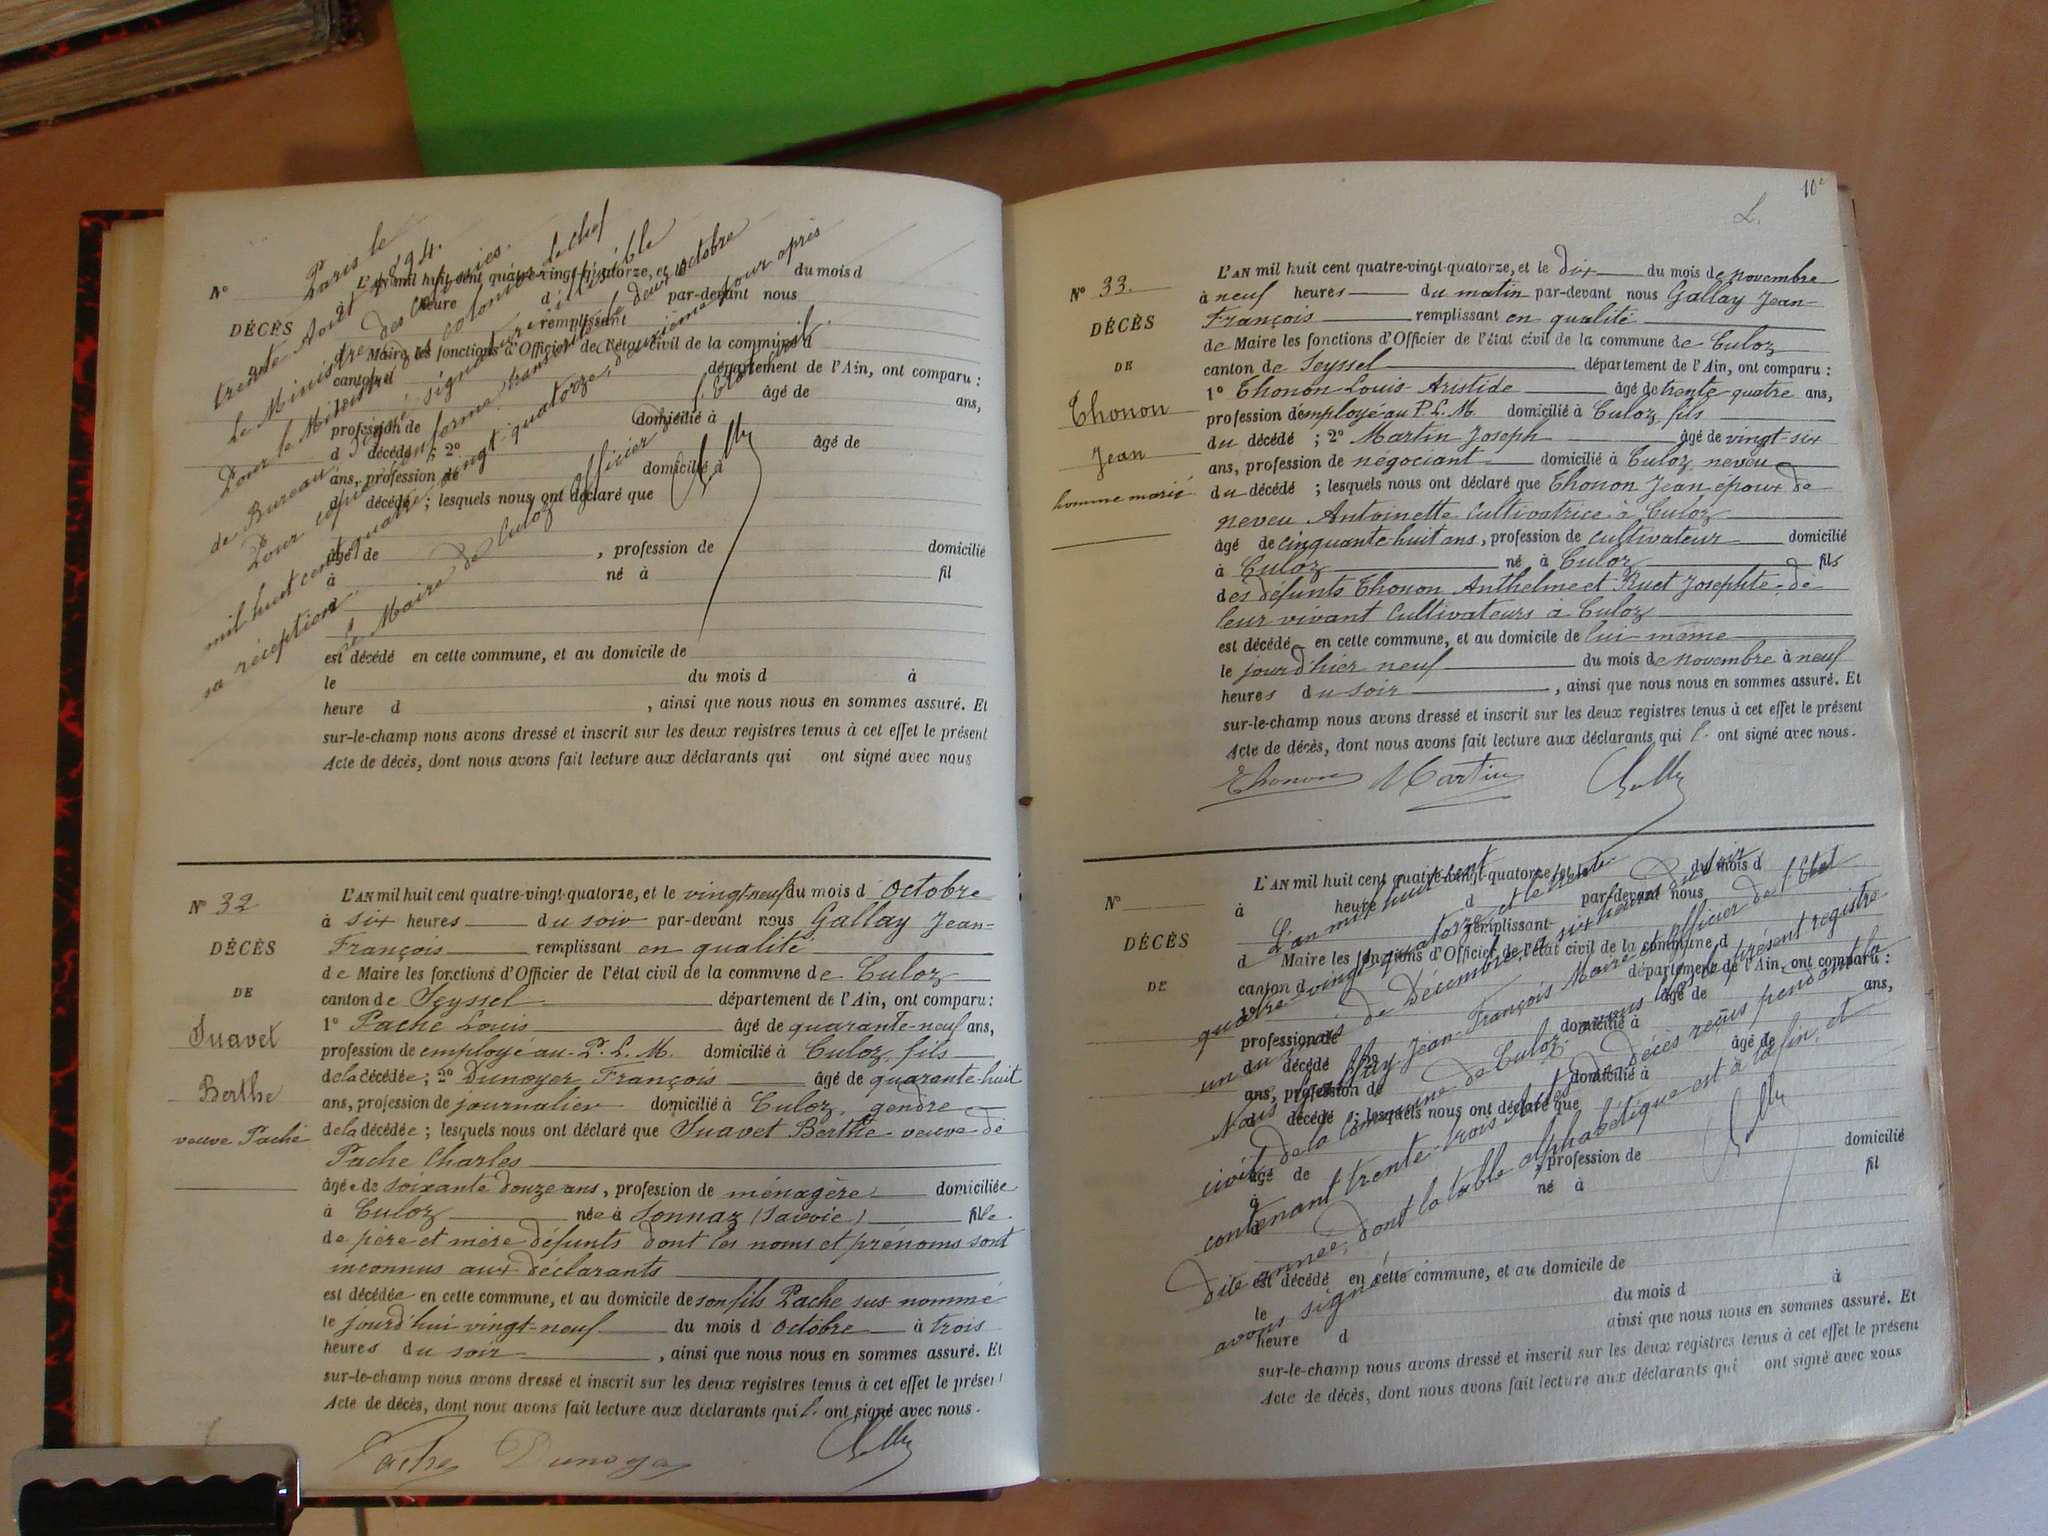 Paris le
trente Août 1894.
Le Ministre des Colonies.
Pour le Ministre des Colonies Le chef
de Bureau Signé signature illisible
Pour copie conforme transcrite le deux octobre
mil huit cent quatre-vingt-quatorze, douzième jour après
sa réception.
Le Maire de Culoz officier de l'Etat civil.
N°
DÉCÈS
L'AN mil huit cent quatre-vingt-quatorze, et le du mois d
à heure d par-devant nous
remplissant
d Maire les fonctions d'Officier de l'état civil de la commune d
canton d département de l'Ain, ont comparu :
1° âgé de ans,
profession de domicilié à
d décédé ; 2° âgé de
ans, profession de domicilié à
d décédé ; lesquels nous ont déclaré que
âgé de , profession de domicilié
à né à fil
est décédé en cette commune, et au domicile de
le du mois d à
heure d , ainsi que nous nous en sommes assuré. Et
sur-le-champ nous avons dressé et inscrit sur les deux registres tenus à cet effet le présent
Acte de décès, dont nous avons fait lecture aux déclarants qui ont signé avec nous
N° 32
DÉCÈS
DE
Suavet
Berthe
veuve Pache
L'AN mil huit cent quatre-vingt-quatorze, et le vingt-neuf du mois d Octobre
à six heures du soir par-devant nous Gallay Jean-
François remplissant en qualité
de Maire les fonctions d'Officier de l'état civil de la commune de Culoz
canton de Seyssel département de l'Ain, ont comparu :
1° Pache Louis âgé de quarante-neuf ans,
profession de employé au P. L. M. domicilié à Culoz, fils
de la décédée ; 2° Dunoyer François âgé de quarante-huit
ans, profession de journalier domicilié à Culoz, gendre
de la décédée ; lesquels nous ont déclaré que Suavet Berthe veuve de
Pache Charles
âgée de soixante douze ans, profession de ménagère domiciliée
à Culoz née à Sonnaz (Savoie) fille
de père et mère défunts dont les noms et prénoms sont
inconnus aux déclarants
est décédée en cette commune, et au domicile de son fils Pache sus-nommé
le jourd'hui vingt-neuf du mois d Octobre à trois
heures du soir , ainsi que nous nous en sommes assuré. Et
sur-le-champ nous avons dressé et inscrit sur les deux registres tenus à cet effet le présent
Acte de décès, dont nous avons fait lecture aux déclarants qui l' ont signé avec nous.
Pache Dunoyer
10
L.
N° 33.
DÉCÈS
DE
Thonon
Jean
homme marié
L'AN mil huit cent quatre-vingt-quatorze, et le dix du mois de novembre
à neuf heures du matin par-devant nous Gallay Jean-
François remplissant en qualité
de Maire les fonctions d'Officier de l'état civil de la commune de Culoz
canton de Seyssel département de l'Ain, ont comparu :
1° Thonon Louis Aristide âgé de trente quatre ans,
profession d'employé au P. L. M. domicilié à Culoz, fils
du décédé ; 2° Martin Joseph âgé de vingt-six
ans, profession de négociant domicilié à Culoz, neveu
du décédé ; lesquels nous ont déclaré que Thonon Jean époux de
neveu Antoinette cultivatrice à Culoz
âgé de cinquante-huit ans, profession de cultivateur domicilié
à Culoz né à Culoz fils
des défunts Thonon Anthelme et Ruet Josephte, de
leur vivant cultivateurs à Culoz
est décédé en cette commune, et au domicile de lui-même
le jourd'hier neuf du mois de novembre à neuf
heures du soir , ainsi que nous nous en sommes assuré. Et
sur-le-champ nous avons dressé et inscrit sur les deux registres tenus à cet effet le présent
Acte de décès, dont nous avons fait lecture aux déclarants qui l' ont signé avec nous.
Thonon Martin
N°
DÉCÈS
DE
L'AN mil huit cent quatre-vingt-quatorze, et le du mois d
à heure d par-devant nous
remplissant
d Maire les fonctions d'Officier de l'état civil de la commune d
canton d département de l'Ain, ont comparu :
1° âgé de ans,
profession de domicilié à
d décédé ; 2° âgé de
ans, profession de domicilié à
d décédé ; lesquels nous ont déclaré que
âgé de , profession de domicilié
à né à fil
est décédé en cette commune, et au domicile de
le du mois d à
heure d ainsi que nous nous en sommes assuré. Et
sur-le-champ nous avons dressé et inscrit sur les deux registres tenus à cet effet le présent
Acte de décès, dont nous avons fait lecture aux déclarants qui ont signé avec nous
L'an mil huit cent
quatre-vingt-quatorze et le trente
un du mois de Décembre, à six heures du soir
Nous Gallay Jean-François Maire et officier de l'Etat
civil de la Commune de Culoz, avons clos le présent registre
contenant trente-trois actes de décès reçus pendant la
dite année, dont la table alphabétique est à la fin, et
avons signé